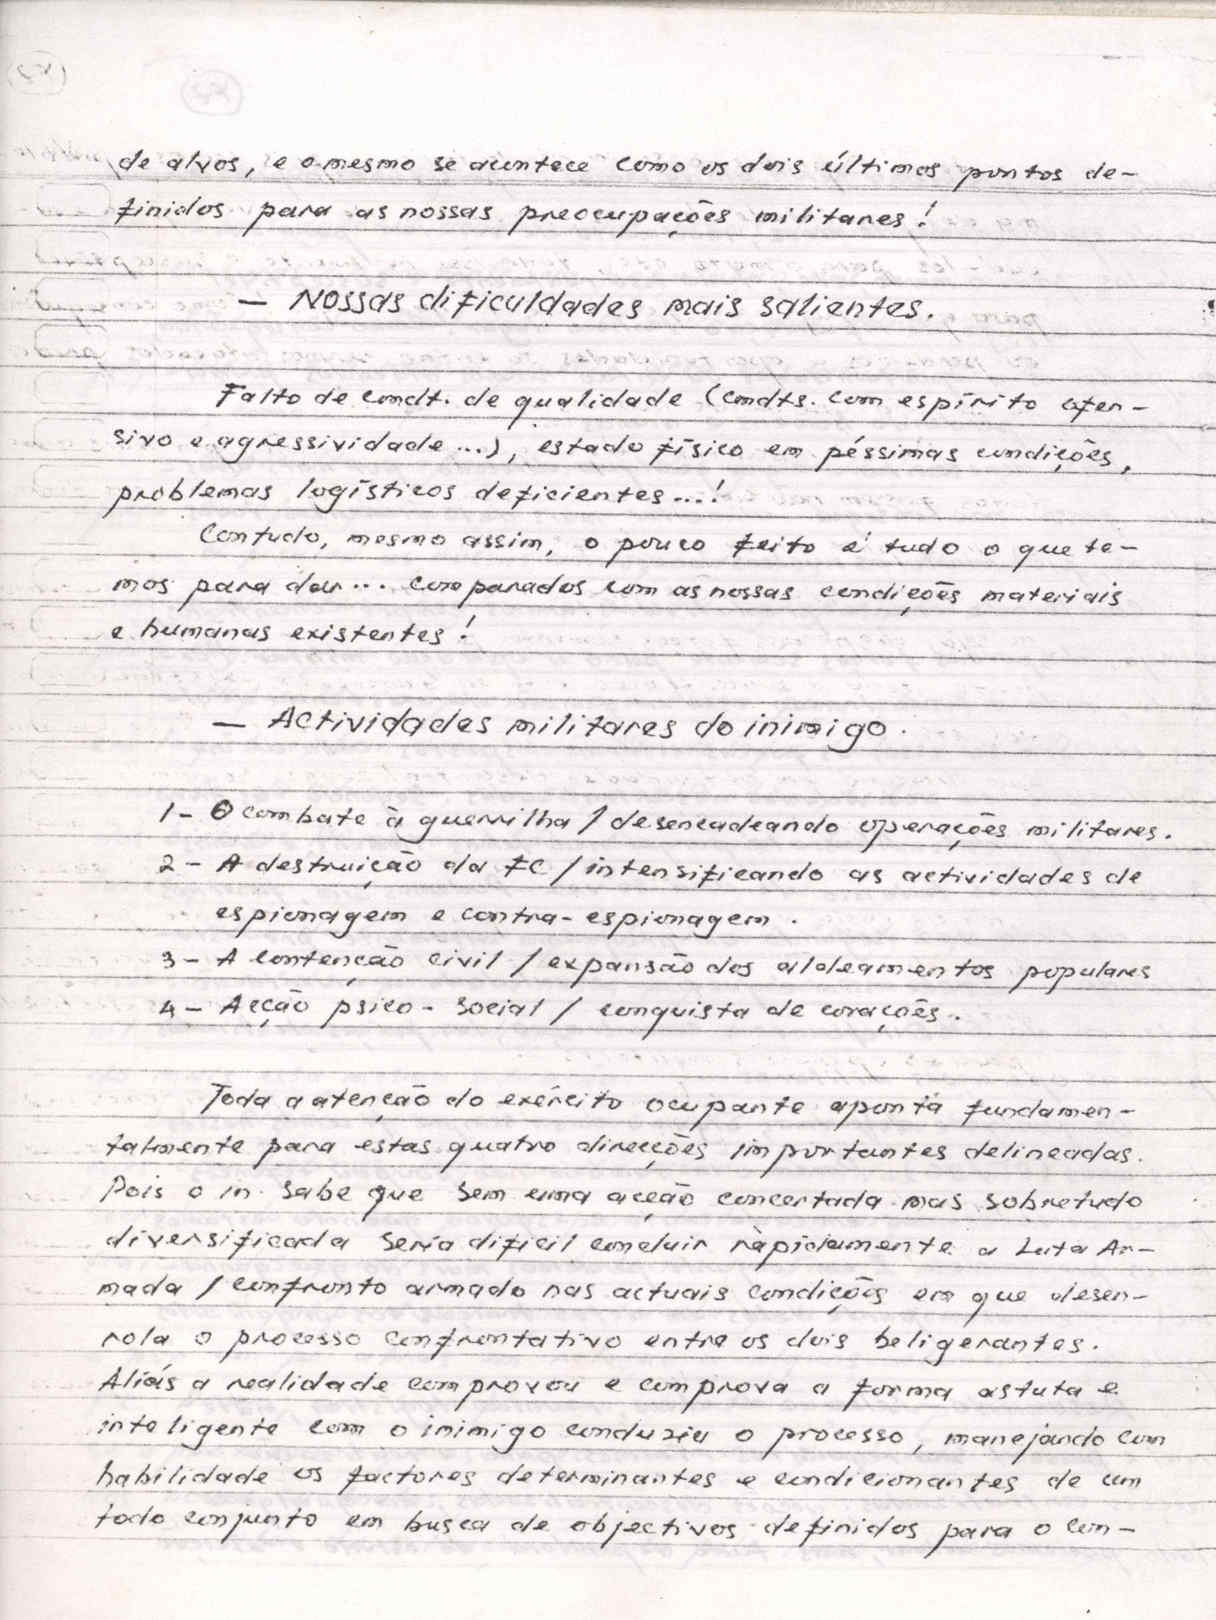 de alvos, e o mesmo se acontece como os dois últimos pontos de-
finidos para as nossas preocupações militares!
— Nossas dificuldades mais salientes.
Falto de comdt. de qualidade (comdts. com espírito ofen-
sivo e agressividade...), estado físico em péssimas condições,
problemas logísticos deficientes...!
Contudo, mesmo assim, o pouco feito é tudo o que te-
mos para dar... comparados com as nossas condições materiais
e humanas existentes!
— Actividades militares do inimigo.
1- O combate à guerrilha / desencadeando operações militares.
2- A destruição da FC / intensificando as actividades de
espionagem e contra-espionagem.
3- A contenção civil / expansão dos aldeamentos populares
4- Acção psico-social / conquista de corações.
Toda a atenção do exército ocupante aponta fundamen-
talmente para estas quatro direcções importantes delineadas.
Pois o in. sabe que sem uma acção concertada mas sobretudo
diversificada seria difícil concluir ràpidamente a Luta Ar-
mada / confronto armado nas actuais condições em que desen-
rola o processo confrontativo entre os dois beligerantes.
Aliás a realidade comprovou e comprova a forma astuta e
inteligente com o inimigo conduziu o processo, manejando com
habilidade os factores determinantes e condicionantes de um
todo conjunto em busca de objectivos definidos para o con-